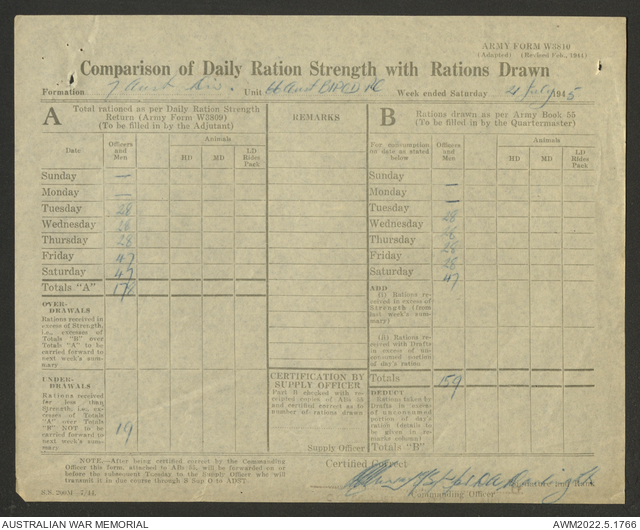 ARMY FORM W3810
(Adapted) (Revised Feb., 1944)
Comparison of Daily Ration Strength with Rations Drawn
Formation 7 Aust Div. Unit 66 Aust Week ended Saturday 21 July 1945
A Total rationed as per Daily Ration Strength Return (Army Form W3809) (To be filled in by the Adjutant)
REMARKS
B Rations drawn as per Army Book 55 (To be filled in by the Quartermaster)
Date Officers and Men Animals HD MD LD Rides Pack
For consumption on date as stated below Officers and Men Animals HD MD LD Rides Pack
Sunday — Sunday —
Monday — Monday —
Tuesday 28 Tuesday 28
Wednesday 28 Wednesday 28
Thursday 28 Thursday 28
Friday 47 Friday 28
Saturday 47 Saturday 47
Totals "A" 178
OVER-DRAWALS
Rations received in excess of Strength, i.e., excesses of Totals "B" over Totals "A" to be carried forward to next week's summary
ADD
(i) Rations received in excess of Strength (from last week's summary)
(ii) Rations received with Drafts in excess of unconsumed portion of day's ration
UNDER-DRAWALS
Rations received for less than Strength, i.e., excesses of Totals "A" over Totals "B" NOT to be carried forward to next week's summary 19
CERTIFICATION BY SUPPLY OFFICER
Part B checked with receipted copies of ABs 55 and certified correct as to number of rations drawn
Supply Officer
Totals 159
DEDUCT
Rations taken by Drafts in excess of unconsumed portion of day's ration (details to be given in remarks column)
Totals "B"
NOTE.—After being certified correct by the Commanding Officer this form, attached to ABs 55, will be forwarded on or before the subsequent Tuesday to the Supply Officer who will transmit it in due course through S Sup O to ADST.
Certified Correct
Commanding Officer
AUSTRALIAN WAR MEMORIAL
AWM2022.5.1766